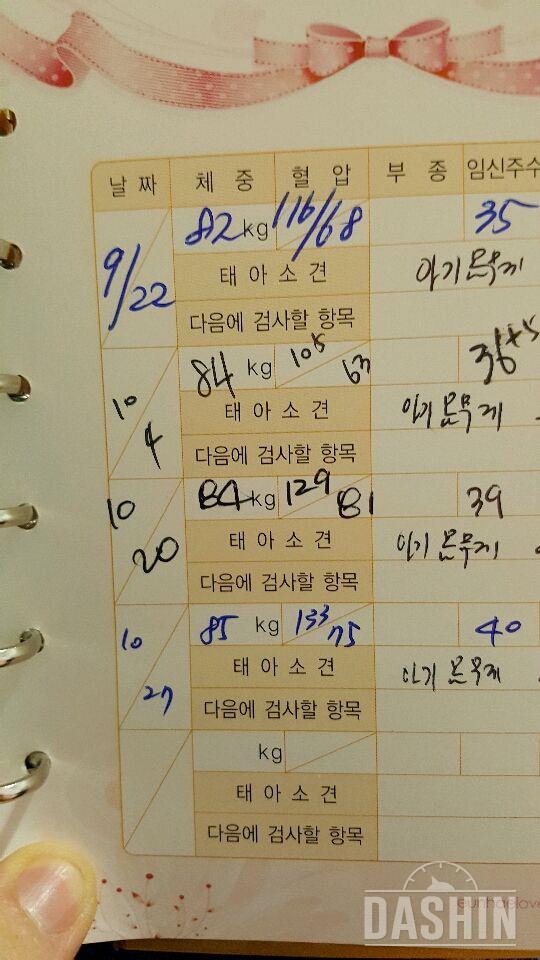 날 짜 체 중 혈 압 부 종 임신주수
9/22 82 kg 116/68 35
태 아 소 견 아기 몸무게
다음에 검사할 항목
10/4 84 kg 105 63 36+5
태 아 소 견 아기 몸무게
다음에 검사할 항목
10/20 84 kg 129 81 39
태 아 소 견 아기 몸무게
다음에 검사할 항목
10/27 85 kg 133/75 40
태 아 소 견 아기 몸무게
다음에 검사할 항목
kg
태 아 소 견
다음에 검사할 항목
eunhaelove
DASHIN